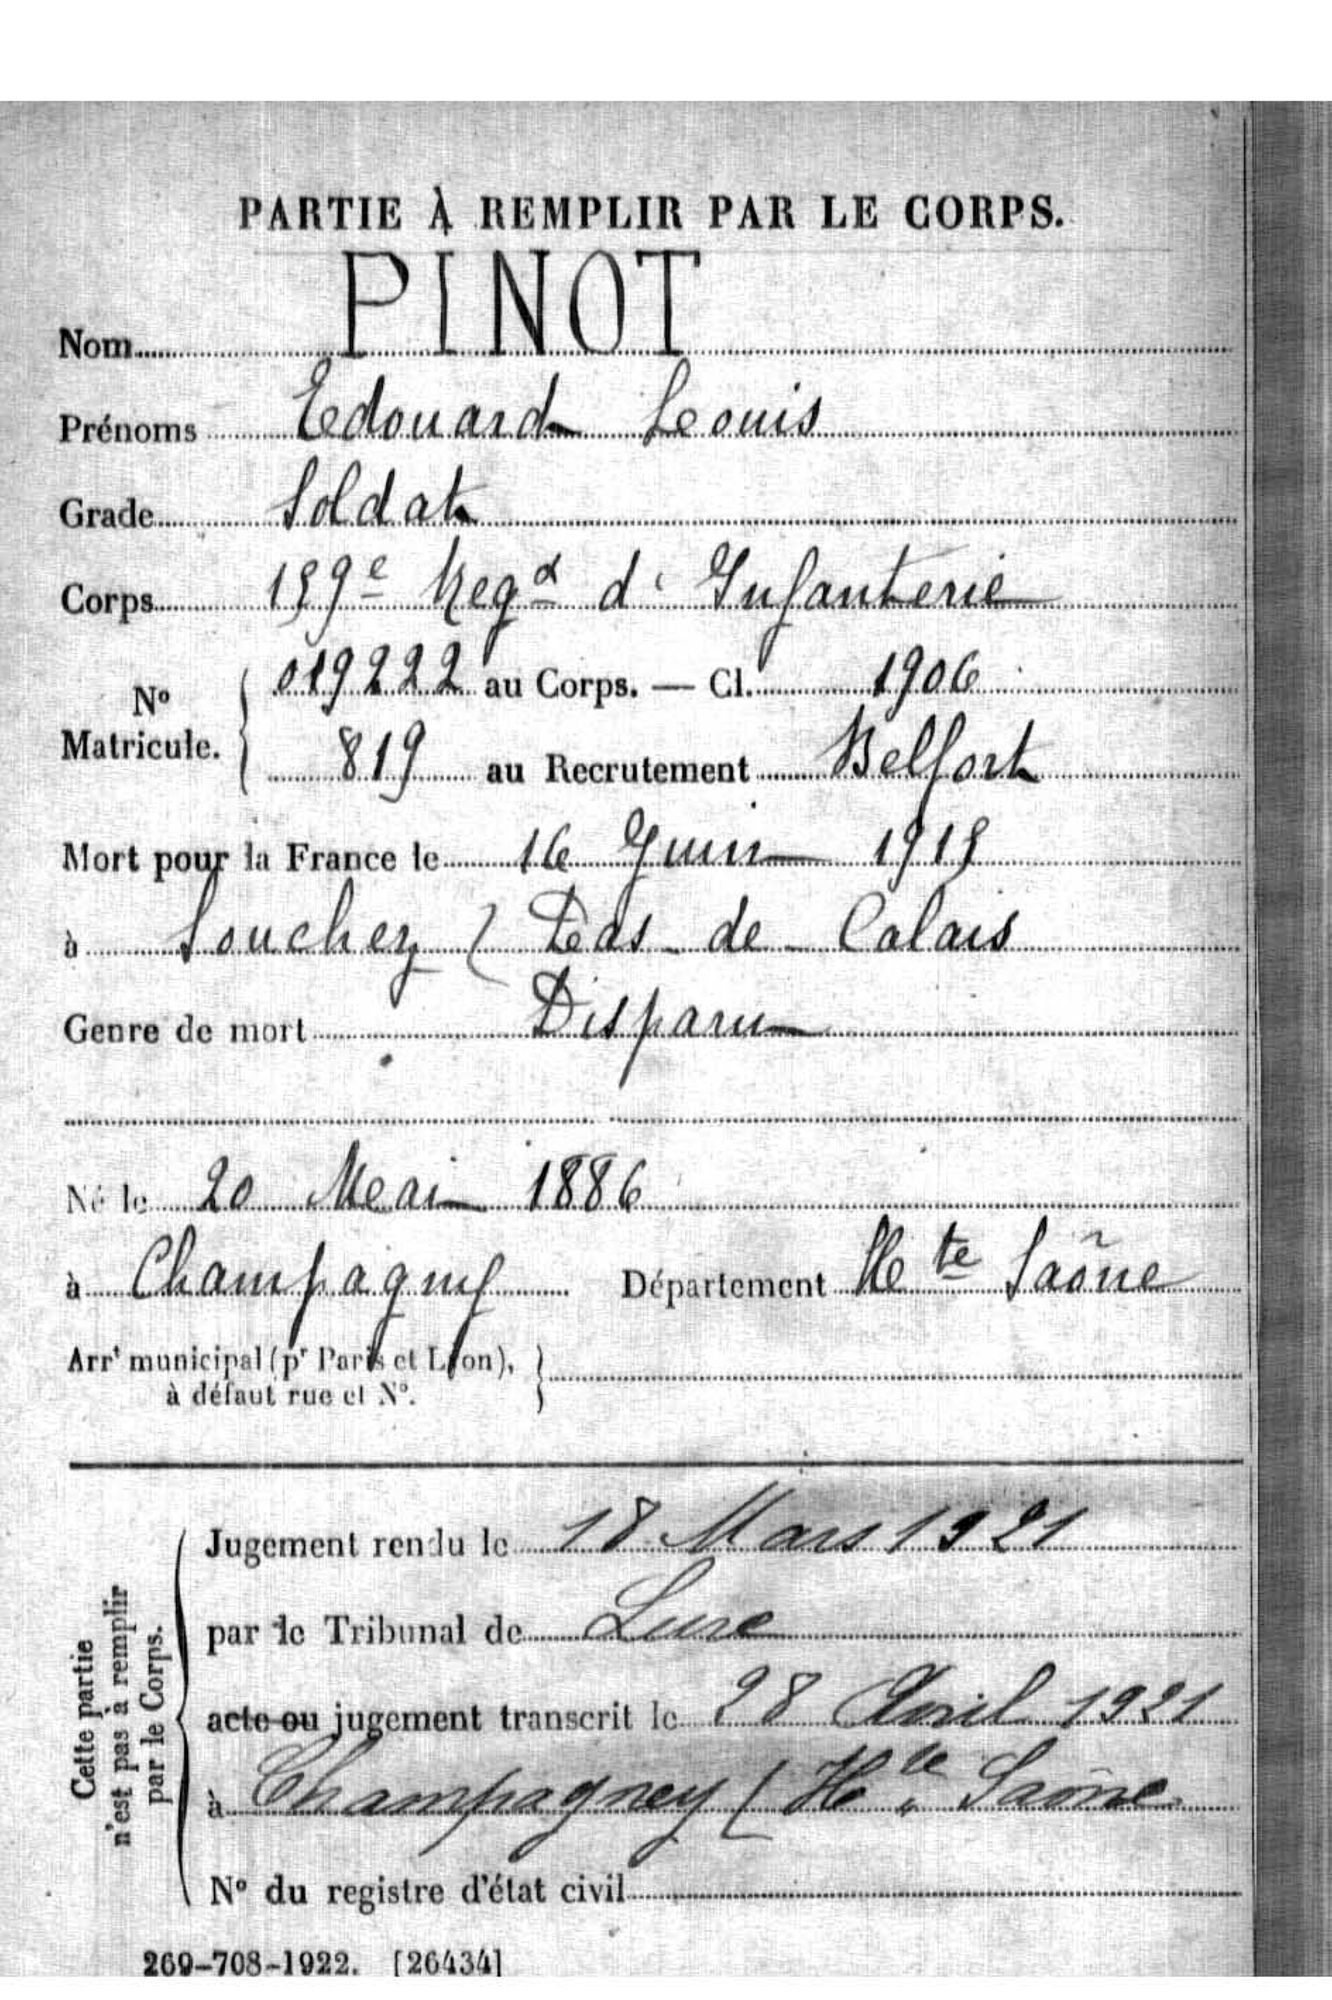 PARTIE À REMPLIR PAR LE CORPS.
Nom PINOT
Prénoms Edouard Louis
Grade Soldat
Corps 159e Regt d'Infanterie
No Matricule. { 019222 au Corps. — Cl. 1906
819 au Recrutement Belfort
Mort pour la France le 16 Juin 1915
à Souchez ( Pas-de-Calais
Genre de mort Disparu
Né le 20 Mai 1886
à Champagny Département Hte Saône
Arrt municipal (pr Paris et Lyon), }
à défaut rue et No.
Cette partie n'est pas à remplir par le Corps.
Jugement rendu le 18 Mars 1921
par le Tribunal de Lure
acte ou jugement transcrit le 28 Avril 1921
à Champagney ( Hte Saône
No du registre d'état civil
269-708-1922. [26434]